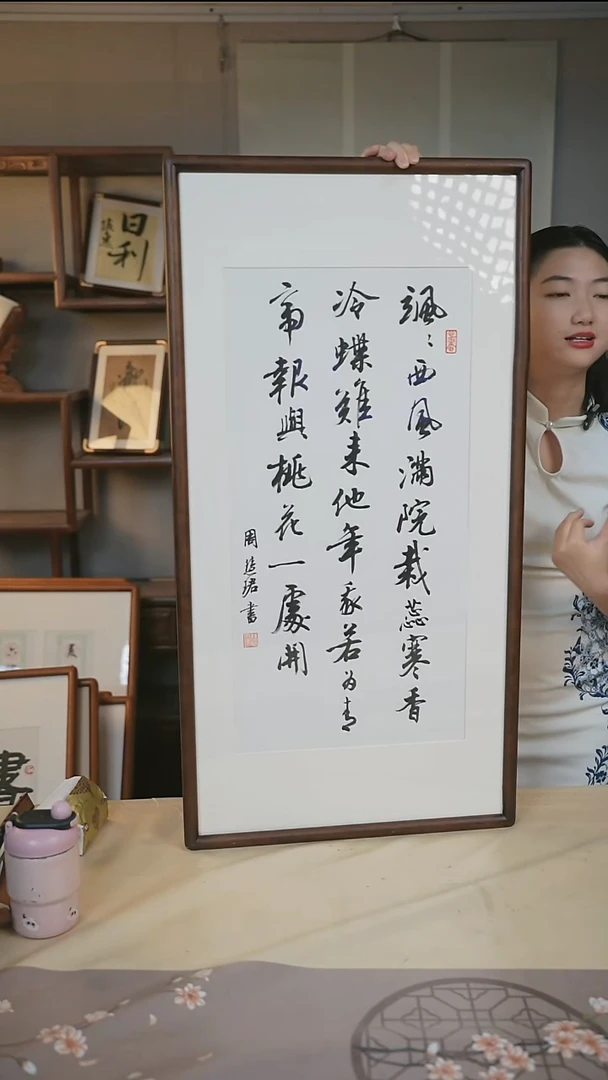 颯〻西風滿院栽蕊寒香
冷蝶難来他年我若为青
帝報與桃花一處開
周珺書
日利
書